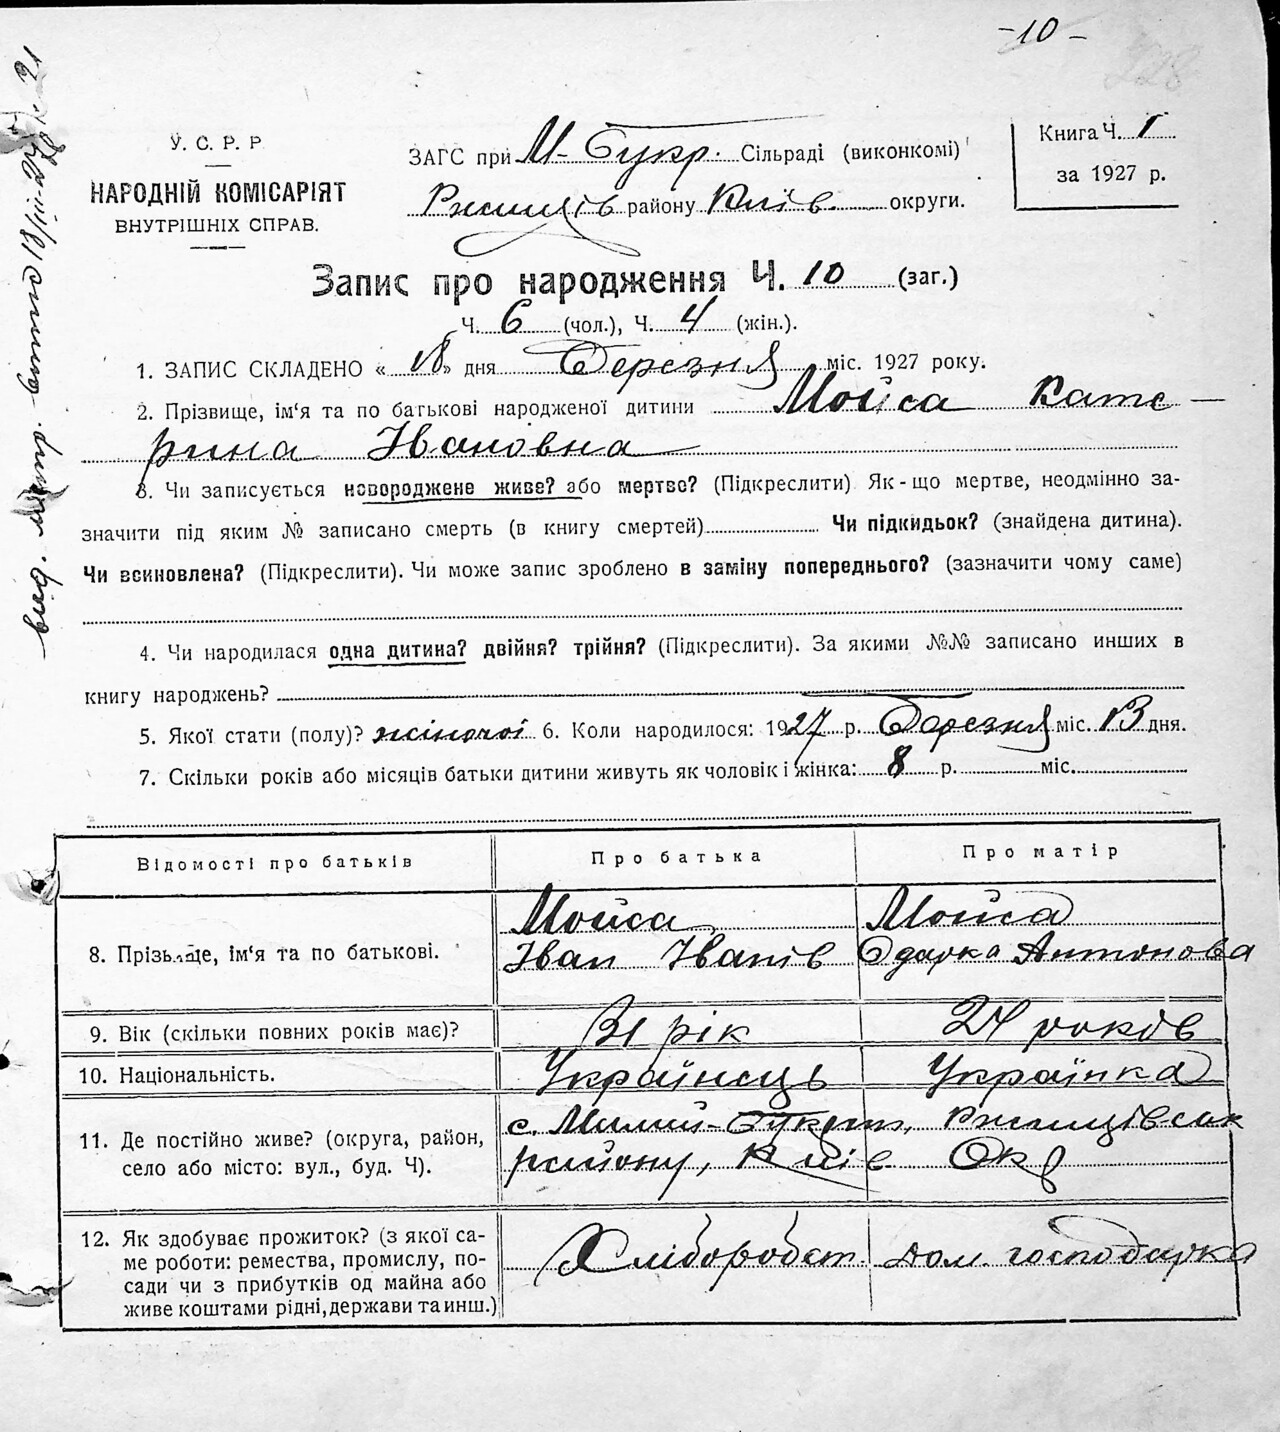 -10-
228
У. С. Р. Р
НАРОДНІЙ КОМІСАРІЯТ
ВНУТРІШНІХ СПРАВ.
ЗАГС при М-Букр. Сільраді (виконкомі)
Ржищів району Київ. округи.
Книга Ч. 1
за 1927 р.
Запис про народження Ч. 10 (заг.)
Ч. 6 (чол.), Ч. 4 (жін.).
1. ЗАПИС СКЛАДЕНО « 18 » дня Березня міс. 1927 року.
2. Прізвище, ім‘я та по батькові народженої дитини Мойса Кате-
рина Івановна
3. Чи записується новороджене живе? або мертве? (Підкреслити) Як-що мертве, неодмінно за-
значити під яким № записано смерть (в книгу смертей) Чи підкидьок? (знайдена дитина).
Чи всиновлена? (Підкреслити). Чи може запис зроблено в заміну попереднього? (зазначити чому саме)
4. Чи народилася одна дитина? двійня? трійня? (Підкреслити). За якими №№ записано инших в
книгу народжень?
5. Якої стати (полу)? жіночої 6. Коли народилося: 1927 р. Березня міс. 13 дня.
7. Скільки років або місяців батьки дитини живуть як чоловік і жінка: 8 р. міс.
Відомості про батьків Про батька Про матір
8. Прізвище, ім‘я та по батькові. Мойса Мойса
Іван Іванів Одарка Антонова
9. Вік (скільки повних років має)? 31 рік 24 років
10. Національність. Українець Українка
11. Де постійно живе? (округа, район, с. Малий-Букрин, Ржищівськ
село або місто: вул., буд. Ч). району, Київ Окр
12. Як здобуває прожиток? (з якої са-
ме роботи: ремества, промислу, по- Хлібороб ст. дом. господарка
сади чи з прибутків од майна або
живе коштами рідні, держави та инш.)